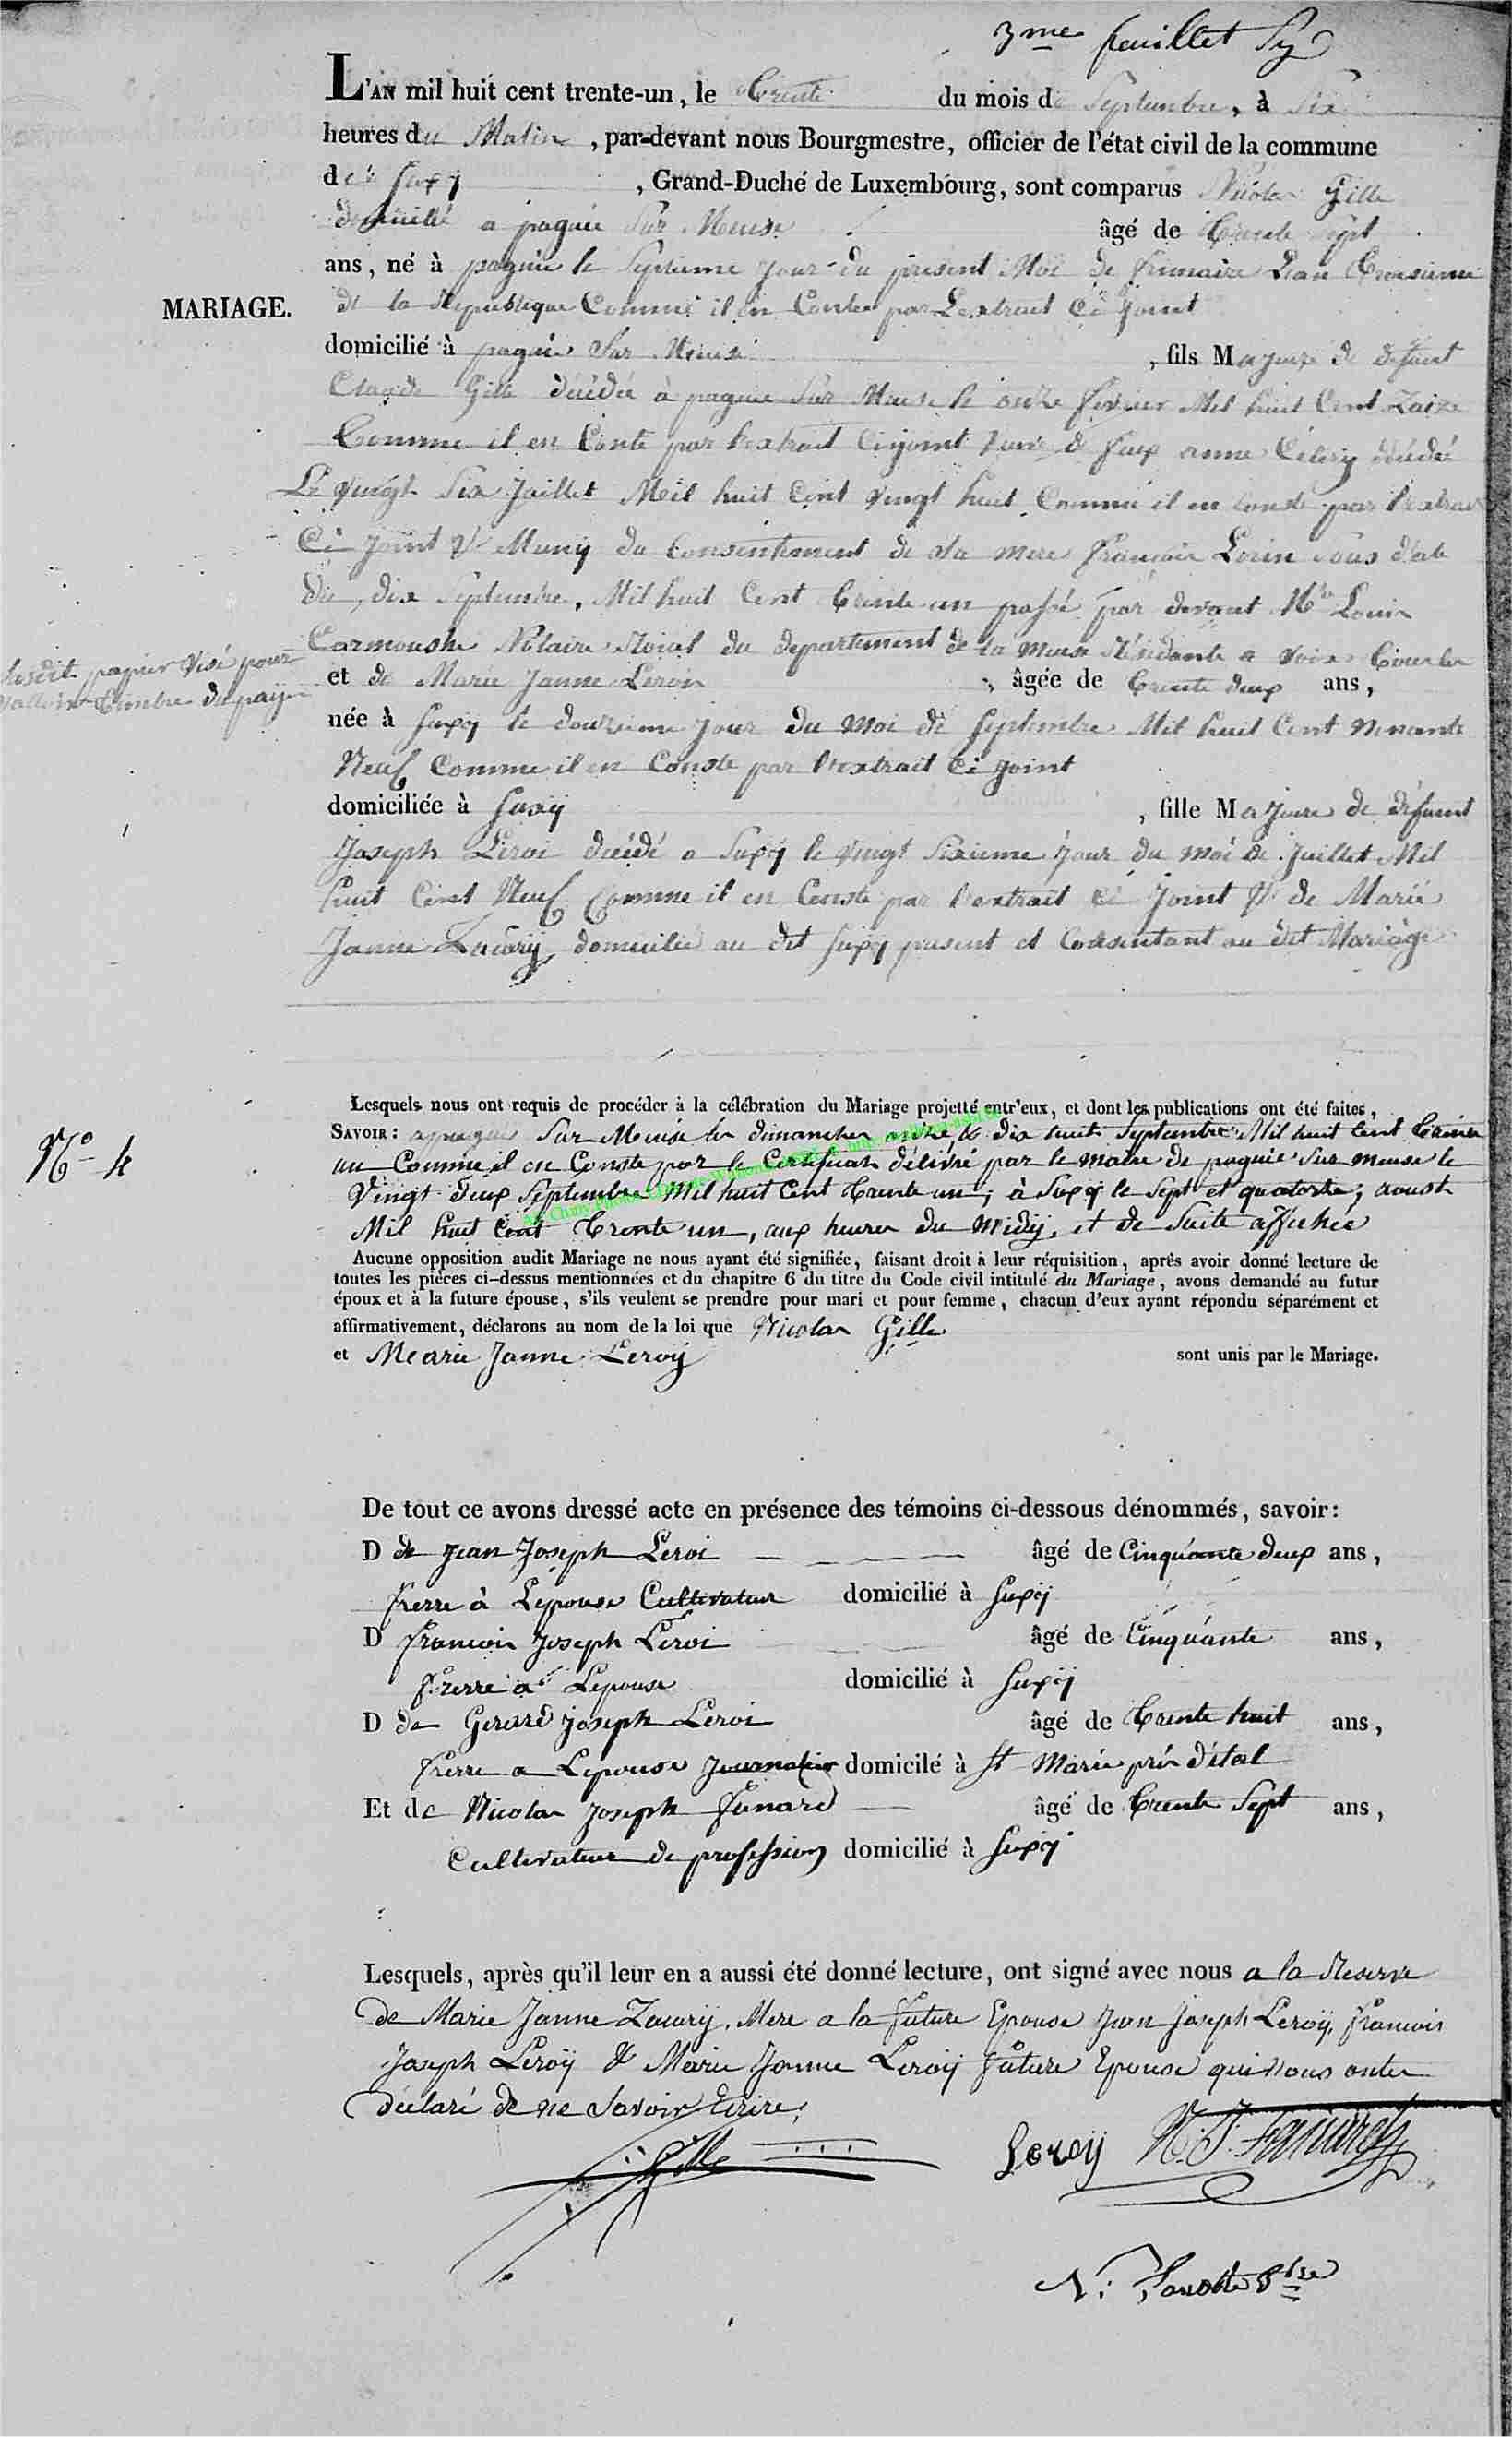 3me feuillet
L'AN mil huit cent trente-un, le Trente du mois de Septembre, à Six
heures du Matin, par-devant nous Bourgmestre, officier de l'état civil de la commune
de Suxÿ, Grand-Duché de Luxembourg, sont comparus Nicolas Gille
domicilié a pagnie Sur Meuse âgé de trente Sept
ans, né à pagnie le Septieme jour du present Moi de frimaire L'an Troisieme
MARIAGE.
de la Republique Comme il en Conste par L'extrait Ci joint
domicilié à pagnie Sur Meuse, fils Majeure de défunt
Claude Gille décédée à pagnie Sur Meuse le onze fevrier Mil huit Cent Zaize
Comme il en Conste par l'extrait Cijoint de feux anne décédé
Le vingt Six Juillet Mil huit Cent vingt huit Comme il en conste par l'extrait
Ci joint & Muny du Consentement de Sa mere francoise Lorin sous date
du dix Septembre, Mil huit Cent trente un passé par devant Mtre Louis
Carmoushe Notaire Roial du departement de la Meuse Résidante a Voie
lesdit papier visé pour
timbre du paÿs
et de Marie Janne Leroi, âgée de trente deux ans,
née à Suxÿ le douzieme jour du moi de Septembre Mil huit Cent Nonante
Neuf Comme il en Conste par l'extrait Ci joint
domiciliée à Suxÿ, fille Majeure de défunt
Joseph Leroi décédé a Suxÿ le vingt Sixieme jour du moi de Juillet Mil
huit Cent Neuf Comme il en Conste par l'extrait Ci Joint & de Marie
Janne Zacarÿ, domiciliée au dit Suxÿ present et Consentant au dit Mariage
Lesquels nous ont requis de procéder à la célébration du Mariage projetté entr'eux, et dont les publications ont été faites,
N° 4
SAVOIR: a pagnie Sur Meuse les dimanches onze & dix huit Septembre Mil huit Cent trente
un Comme il en Conste par le Certificat délivré par le maire de pagnie Sur meuse le
Vingt deux Septembre Mil huit Cent trente un, à Suxÿ le Sept et quatorse, aoust
Mil huit Cent Trente un, aux heures du Midÿ, et de Suite affichée
Aucune opposition audit Mariage ne nous ayant été signifiée, faisant droit à leur réquisition, après avoir donné lecture de
toutes les pièces ci-dessus mentionnées et du chapitre 6 du titre du Code civil intitulé du Mariage, avons demandé au futur
époux et à la future épouse, s'ils veulent se prendre pour mari et pour femme, chacun d'eux ayant répondu séparément et
affirmativement, déclarons au nom de la loi que Nicolas Gille
et Mearie Janne Leroÿ sont unis par le Mariage.
De tout ce avons dressé acte en présence des témoins ci-dessous dénommés, savoir:
D de Jean Joseph Leroi âgé de Cinquante deux ans,
frerre à Lepouse Cultivateur domicilié à Suxÿ
D francois Joseph Leroi âgé de Cinquante ans,
frerre a Lepouse domicilié à Suxÿ
D de Gerard Joseph Leroi âgé de trente huit ans,
frerre a Lepouse Journalier domicilé à St Marie prés d'étal
Et de Nicolas Joseph Funard âgé de trente Sept ans,
Cultivateur de profession domicilié à Suxÿ
Lesquels, après qu'il leur en a aussi été donné lecture, ont signé avec nous a la Reserve
de Marie Janne Zacarÿ, Mere a la future Epouse Jean Joseph Leroÿ, francois
Joseph Leroÿ & Marie Janne Leroÿ future Epouse qui nous ontes
déclaré de ne Savoir Ecrire,
Gille
Leroÿ